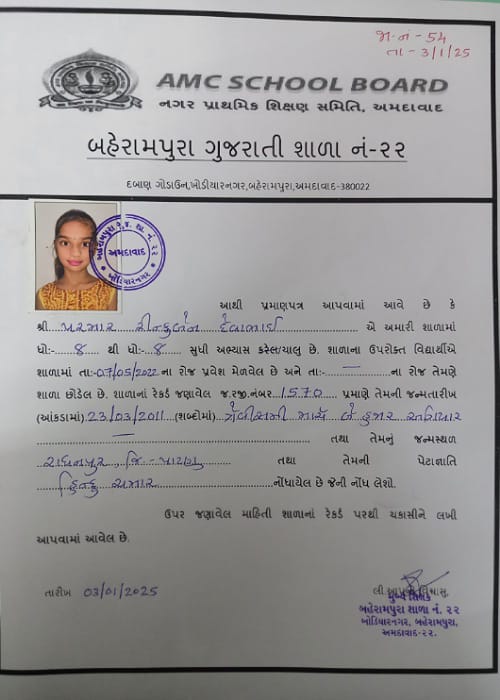 જા.નં - 54
તા - 3/1/25
AMC SCHOOL BOARD
નગર પ્રાથમિક શિક્ષણ સમિતિ, અમદાવાદ
બહેરામપુરા ગુજરાતી શાળા નં-૨૨
દબાણ ગોડાઉન,ખોડીયારનગર,બહેરામપુરા,અમદાવાદ-380022
અમદાવાદ
ખોડિયારનગર
આથી પ્રમાણપત્ર આપવામાં આવે છે કે
શ્રી પરમાર રીન્કુબેન દેવાભાઈ એ અમારી શાળામાં
ધો:- 8 થી ધો:- 8 સુધી અભ્યાસ કરેલ/ચાલુ છે. શાળાના ઉપરોક્ત વિદ્યાર્થીએ
શાળામાં તા:-07/05/2022 ના રોજ પ્રવેશ મેળવેલ છે અને તા:- — ના રોજ તેમણે
શાળા છોડેલ છે. શાળાનાં રેકર્ડ જણાવેલ જ.રજી.નંબર 1570 પ્રમાણે તેમની જન્મતારીખ
(આંકડામાં) 23/03/2011 (શબ્દોમાં) ત્રેવીસમી માર્ચ બે હજાર અગિયાર
— તથા તેમનું જન્મસ્થળ
રાધનપુર, જિ-પાટણ તથા તેમની પેટાજ્ઞાતિ
હિન્દુ ચમાર નોંધાયેલ છે જેની નોંધ લેશો.
ઉપર જણાવેલ માહિતી શાળાનાં રેકર્ડ પરથી ચકાસીને લખી
આપવામાં આવેલ છે.
તારીખ 03/01/2025
લી.આપનો વિશ્વાસુ,
મુખ્ય શિક્ષક
બહેરામપુરા શાળા નં. ૨૨
ખોડિયારનગર, બહેરામપુરા,
અમદાવાદ-૨૨.